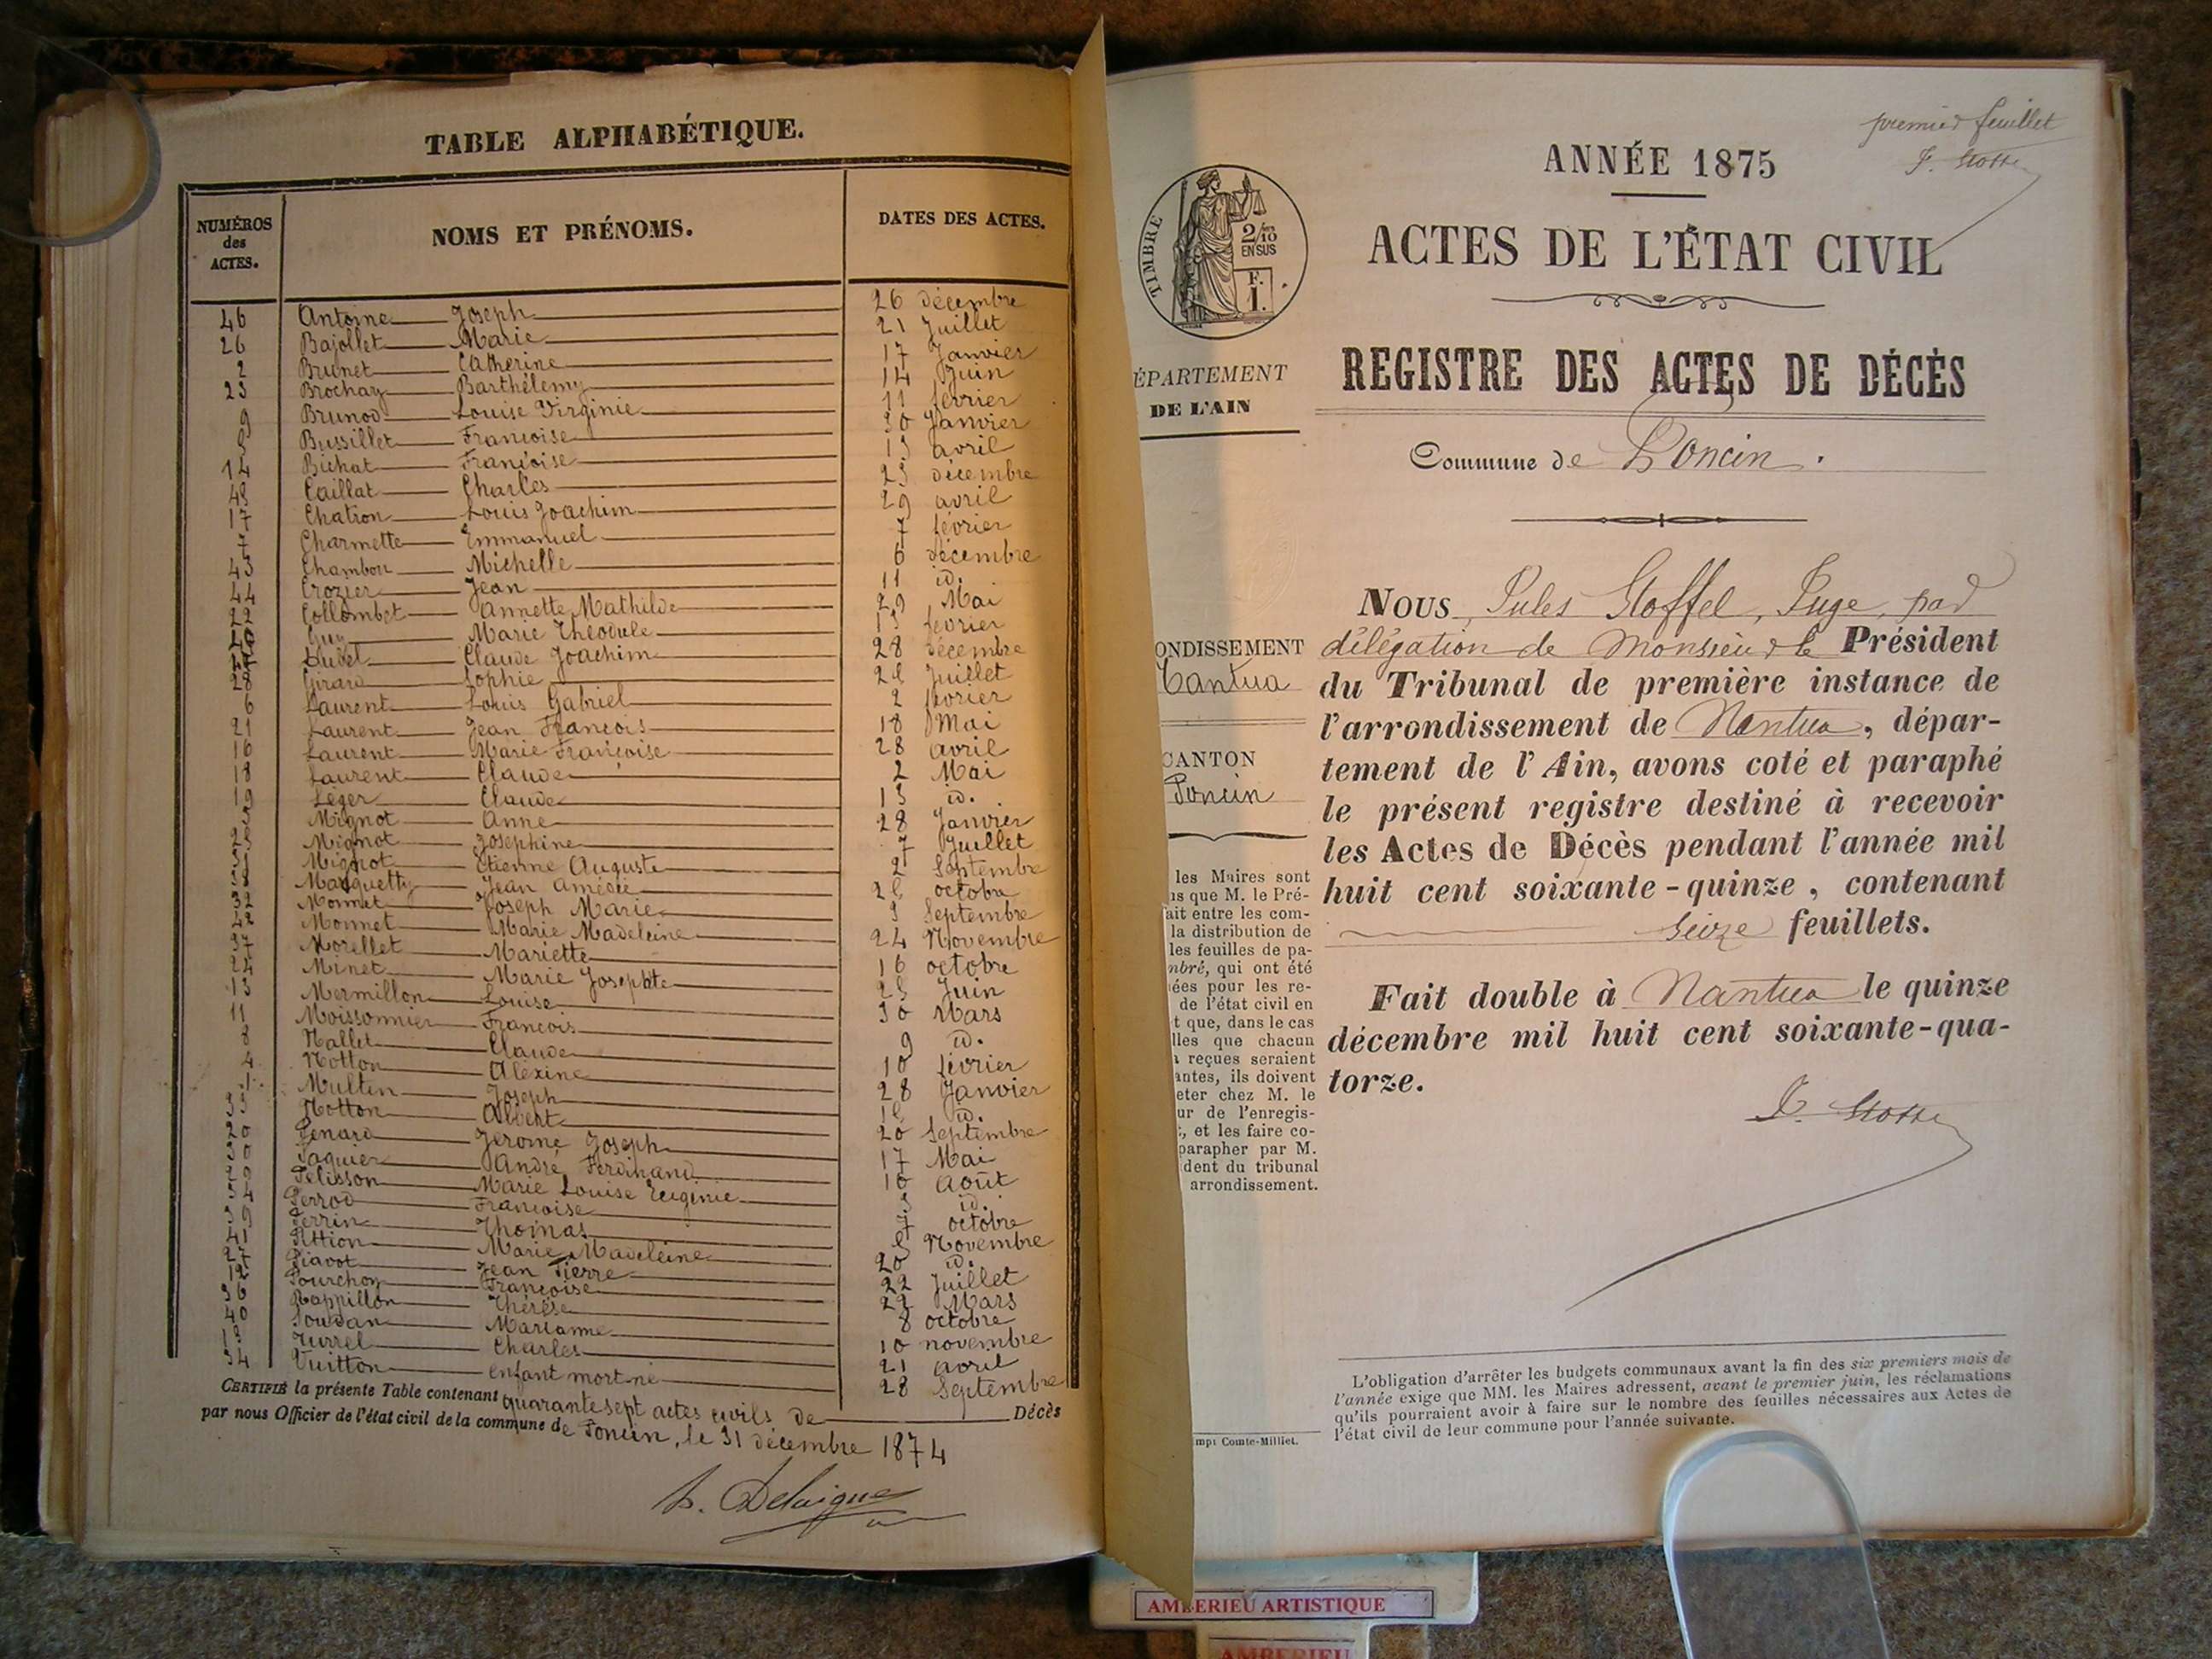 TABLE ALPHABÉTIQUE.
NUMÉROS des ACTES. NOMS ET PRÉNOMS. DATES DES ACTES.
46 Antoine Joseph 26 décembre
26 Bajollet Marie 21 Juillet
2 Brunet Catherine 17 Janvier
23 Brochay Barthélemy 14 Juin
9 Brunod Louise Virginie 11 février
5 Bussillet Françoise 30 Janvier
14 Bichat Françoise 13 avril
45 Caillat Charles 25 décembre
17 Chatron Louis Joachim 29 avril
7 Charmette Emmanuel 7 février
43 Chambon Michelle 6 décembre
44 Crozier Jean 11 id.
22 Collombet Annette Mathilde 29 Mai
Guy Marie Théodule 13 février
Claude Joachim 28 décembre
28 Girard Sophie Juillet
6 Laurent Louis Gabriel 2 février
21 Laurent Jean François 18 Mai
16 Laurent Marie Françoise 28 avril
18 Laurent Claude 2 Mai
19 Léger Claude 13 id.
3 Mignot Anne 28 Janvier
25 Mignot Josephine 7 Juillet
31 Mignot Etienne Auguste 2 Septembre
Marquetty Jean Amédée octobre
32 Monnet Joseph Marie 3 Septembre
42 Monnet Marie Madeleine 24 Novembre
37 Morellet Mariette 16 octobre
24 Minet Marie Josephte 25 Juin
13 Mermillon Louise 30 Mars
11 Moissonnier François 9 id.
8 Nallet Claude 10 février
4 Notton Alexine 28 Janvier
1 Multin Joseph id.
33 Notton Albert 20 Septembre
20 Penard Jérome Joseph 17 Mai
30 Paquier André Ferdinand 16 Août
29 Pélisson Marie Louise Eugénie 3 id.
34 Perrod Françoise 7 octobre
39 Perrin Thomas Novembre
41 Pittion Marie Madeleine 20 id.
27 Piavot Jean Pierre 22 Juillet
12 Pourchoy Françoise 22 Mars
36 Rappillon Thérèse 8 octobre
40 Soudan Marianne 10 novembre
15 Turrel Charles 21 avril
34 Vuitton enfant mort né 28 Septembre
CERTIFIÉ la présente Table contenant quarante sept actes civils de Décès
par nous Officier de l'état civil de la commune de Poncin, le 31 décembre 1874
Delaigue
premier feuillet
ANNÉE 1875
TIMBRE
2/10 EN SUS
F. 1.
ACTES DE L'ÉTAT CIVIL
REGISTRE DES ACTES DE DÉCÈS
Commune de Poncin.
ÉPARTEMENT
DE L'AIN
ONDISSEMENT
Nantua
CANTON
Poncin
les Maires sont
us que M. le Pré-
ait entre les com-
la distribution de
les feuilles de pa-
nbré, qui ont été
ées pour les re-
de l'état civil en
t que, dans le cas
lles que chacun
a reçues seraient
antes, ils doivent
eter chez M. le
ur de l'enregis-
t, et les faire co-
parapher par M.
dent du tribunal
arrondissement.
mpr Comte-Milliet.
NOUS, Jules Stoffel, Juge, par
délégation de Monsieur le Président
du Tribunal de première instance de
l'arrondissement de Nantua, dépar-
tement de l'Ain, avons coté et paraphé
le présent registre destiné à recevoir
les Actes de Décès pendant l'année mil
huit cent soixante-quinze, contenant
seize feuillets.
Fait double à Nantua le quinze
décembre mil huit cent soixante-qua-
torze.
L'obligation d'arrêter les budgets communaux avant la fin des six premiers mois de
l'année exige que MM. les Maires adressent, avant le premier juin, les réclamations
qu'ils pourraient avoir à faire sur le nombre des feuilles nécessaires aux Actes de
l'état civil de leur commune pour l'année suivante.
AMBERIEU ARTISTIQUE
AMBERIEU